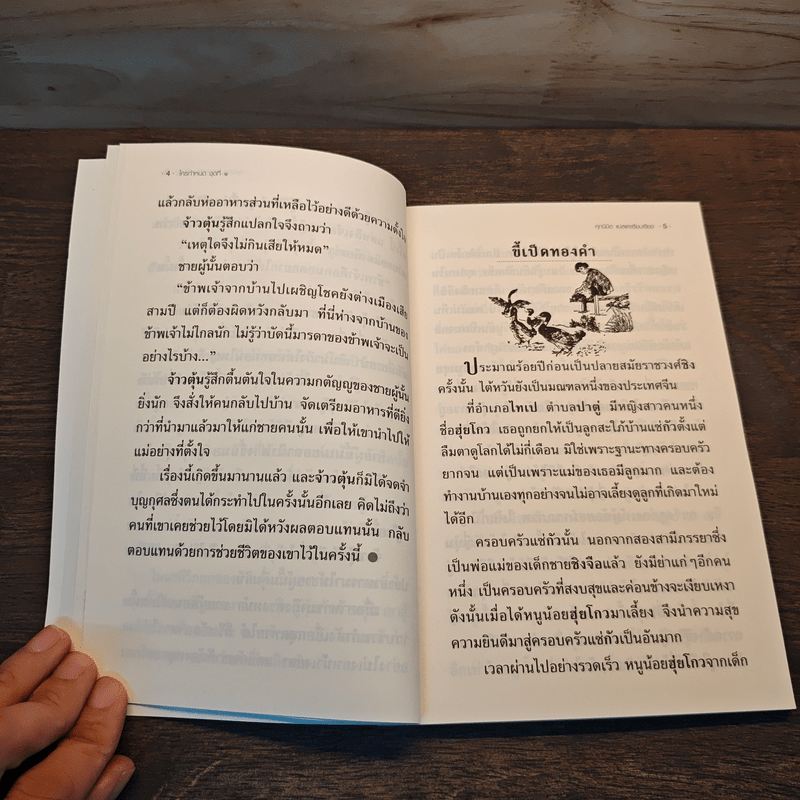 4 · ใครกำหนด ชุดที่ ๑
แล้วกลับห่ออาหารส่วนที่เหลือไว้อย่างดีด้วยความตั้งใจ
จ้าวตุ้นรู้สึกแปลกใจจึงถามว่า
“เหตุใดจึงไม่กินเสียให้หมด”
ชายผู้นั้นตอบว่า
“ข้าพเจ้าจากบ้านไปเผชิญโชคยังต่างเมืองเสีย
สามปี แต่ก็ต้องผิดหวังกลับมา ที่นี่ห่างจากบ้านของ
ข้าพเจ้าไม่ไกลนัก ไม่รู้ว่าบัดนี้มารดาของข้าพเจ้าจะเป็น
อย่างไรบ้าง...”
จ้าวตุ้นรู้สึกตื้นตันใจในความกตัญญูของชายผู้นั้น
ยิ่งนัก จึงสั่งให้คนกลับไปบ้าน จัดเตรียมอาหารที่ดียิ่ง
กว่าที่นำมาแล้วมาให้แก่ชายคนนั้น เพื่อให้เขานำไปให้
แม่อย่างที่ตั้งใจ
เรื่องนี้เกิดขึ้นมานานแล้ว และจ้าวตุ้นก็มิได้จดจำ
บุญกุศลซึ่งตนได้กระทำไปในครั้งนั้นอีกเลย คิดไม่ถึงว่า
คนที่เขาเคยช่วยไว้โดยมิได้หวังผลตอบแทนนั้น กลับ
ตอบแทนด้วยการช่วยชีวิตของเขาไว้ในครั้งนี้
ศุภนิมิต แปลและเรียบเรียง · 5
ขี้เป็ดทองคำ
ประมาณร้อยปีก่อนเป็นปลายสมัยราชวงศ์ชิง
ครั้งนั้น ไต้หวันยังเป็นมณฑลหนึ่งของประเทศจีน
ที่อำเภอไทเป ตำบลปาตู่ มีหญิงสาวคนหนึ่ง
ชื่อฮุ่ยโกว เธอถูกยกให้เป็นลูกสะใภ้บ้านแซ่กัวตั้งแต่
ลืมตาดูโลกได้ไม่กี่เดือน มิใช่เพราะฐานะทางครอบครัว
ยากจน แต่เป็นเพราะแม่ของเธอมีลูกมาก และต้อง
ทำงานบ้านเองทุกอย่างจนไม่อาจเลี้ยงดูลูกที่เกิดมาใหม่
ได้อีก
ครอบครัวแซ่กัวนั้น นอกจากสองสามีภรรยาซึ่ง
เป็นพ่อแม่ของเด็กชายชิงจือแล้ว ยังมีย่าแก่ๆอีกคน
หนึ่ง เป็นครอบครัวที่สงบสุขและค่อนข้างจะเงียบเหงา
ดังนั้นเมื่อได้หนูน้อยฮุ่ยโกวมาเลี้ยง จึงนำความสุข
ความยินดีมาสู่ครอบครัวแซ่กัวเป็นอันมาก
เวลาผ่านไปอย่างรวดเร็ว หนูน้อยฮุ่ยโกวจากเด็ก